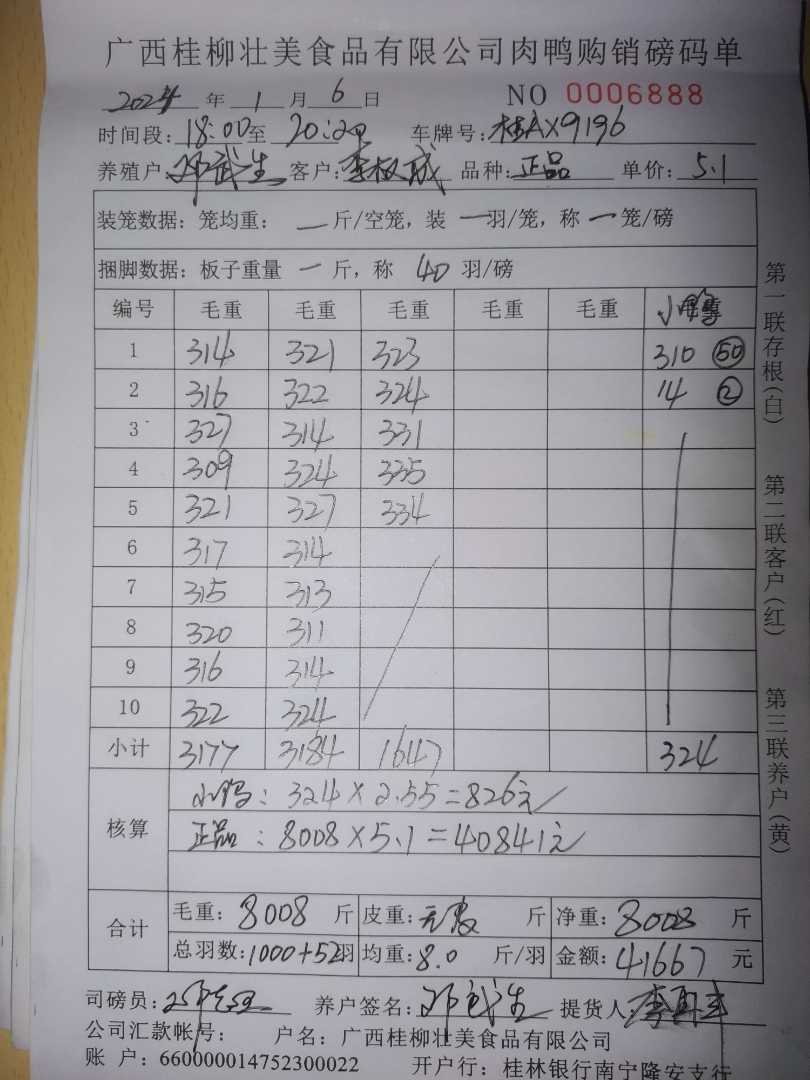 广西桂柳壮美食品有限公司肉鸭购销磅码单
2024 年 1 月 6 日 NO 0006888
时间段: 18:00 至 20:20 车牌号: 桂AX9196
养殖户: 邓武生 客户: 李权成 品种: 正品 单价: 5.1
装笼数据: 笼均重: 一 斤/空笼, 装 一 羽/笼, 称 一 笼/磅
捆脚数据: 板子重量 一 斤, 称 40 羽/磅
编号 毛重 毛重 毛重 毛重 毛重 小鸭
1 314 321 323 310 50
2 316 322 324 14 2
3 327 314 331
4 309 324 335
5 321 327 334
6 317 314
7 315 313
8 320 311
9 316 314
10 322 324
小计 3177 3184 1647 324
核算
小鸭: 324×2.55=826元
正品: 8008×5.1=40841元
合计
毛重: 8008 斤 皮重: 斤 净重: 8008 斤
总羽数: 1000+52羽 均重: 8.0 斤/羽 金额: 41667 元
司磅员: 养户签名: 邓武生 提货人:
公司汇款帐号: 户名: 广西桂柳壮美食品有限公司
账 户: 660000014752300022 开户行: 桂林银行南宁隆安支行
第一联存根(白) 第二联客户(红) 第三联养户(黄)